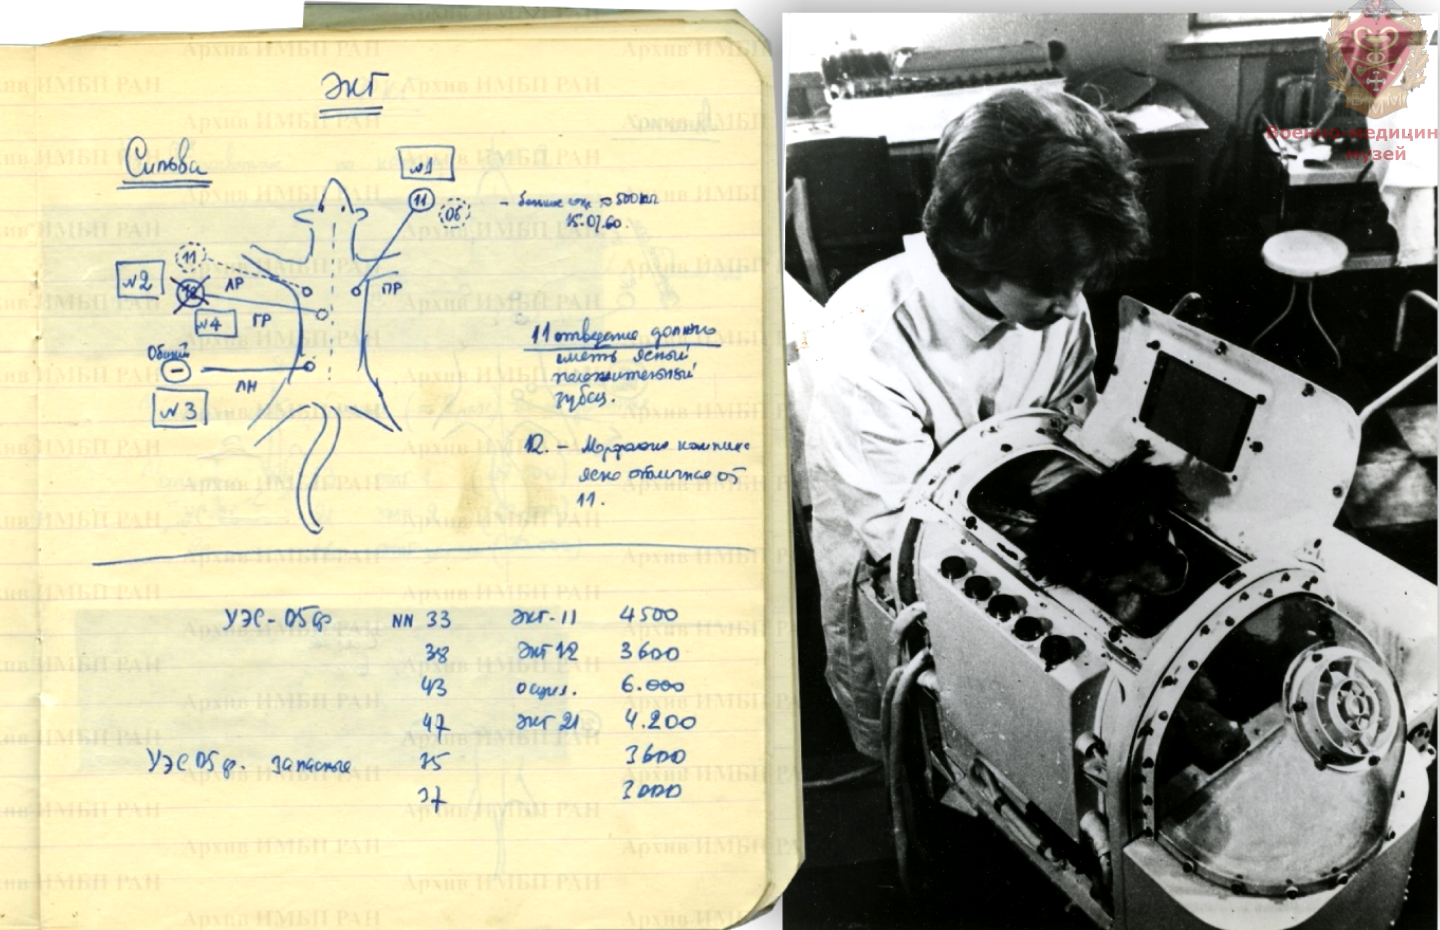 ЭКГ
Сильва
№1
11
Об
15.07.60.
11
№2
12
ЛР
ПР
№4
ГР
Общий
–
ЛН
№3
11 отведение должно
иметь ясный
положительный
зубец.
12. – Морфология комплекса
ясно отличная от
11.
УЭС-05ф NN 33 ЭКГ-11 4500
38 ЭКГ 12 3600
43 6.000
47 ЭКГ 21 4.200
УЭС 05ф. Запасные 35 3600
37 3000
Архив ИМБП РАН
Военно-медицин
музей
ВММ